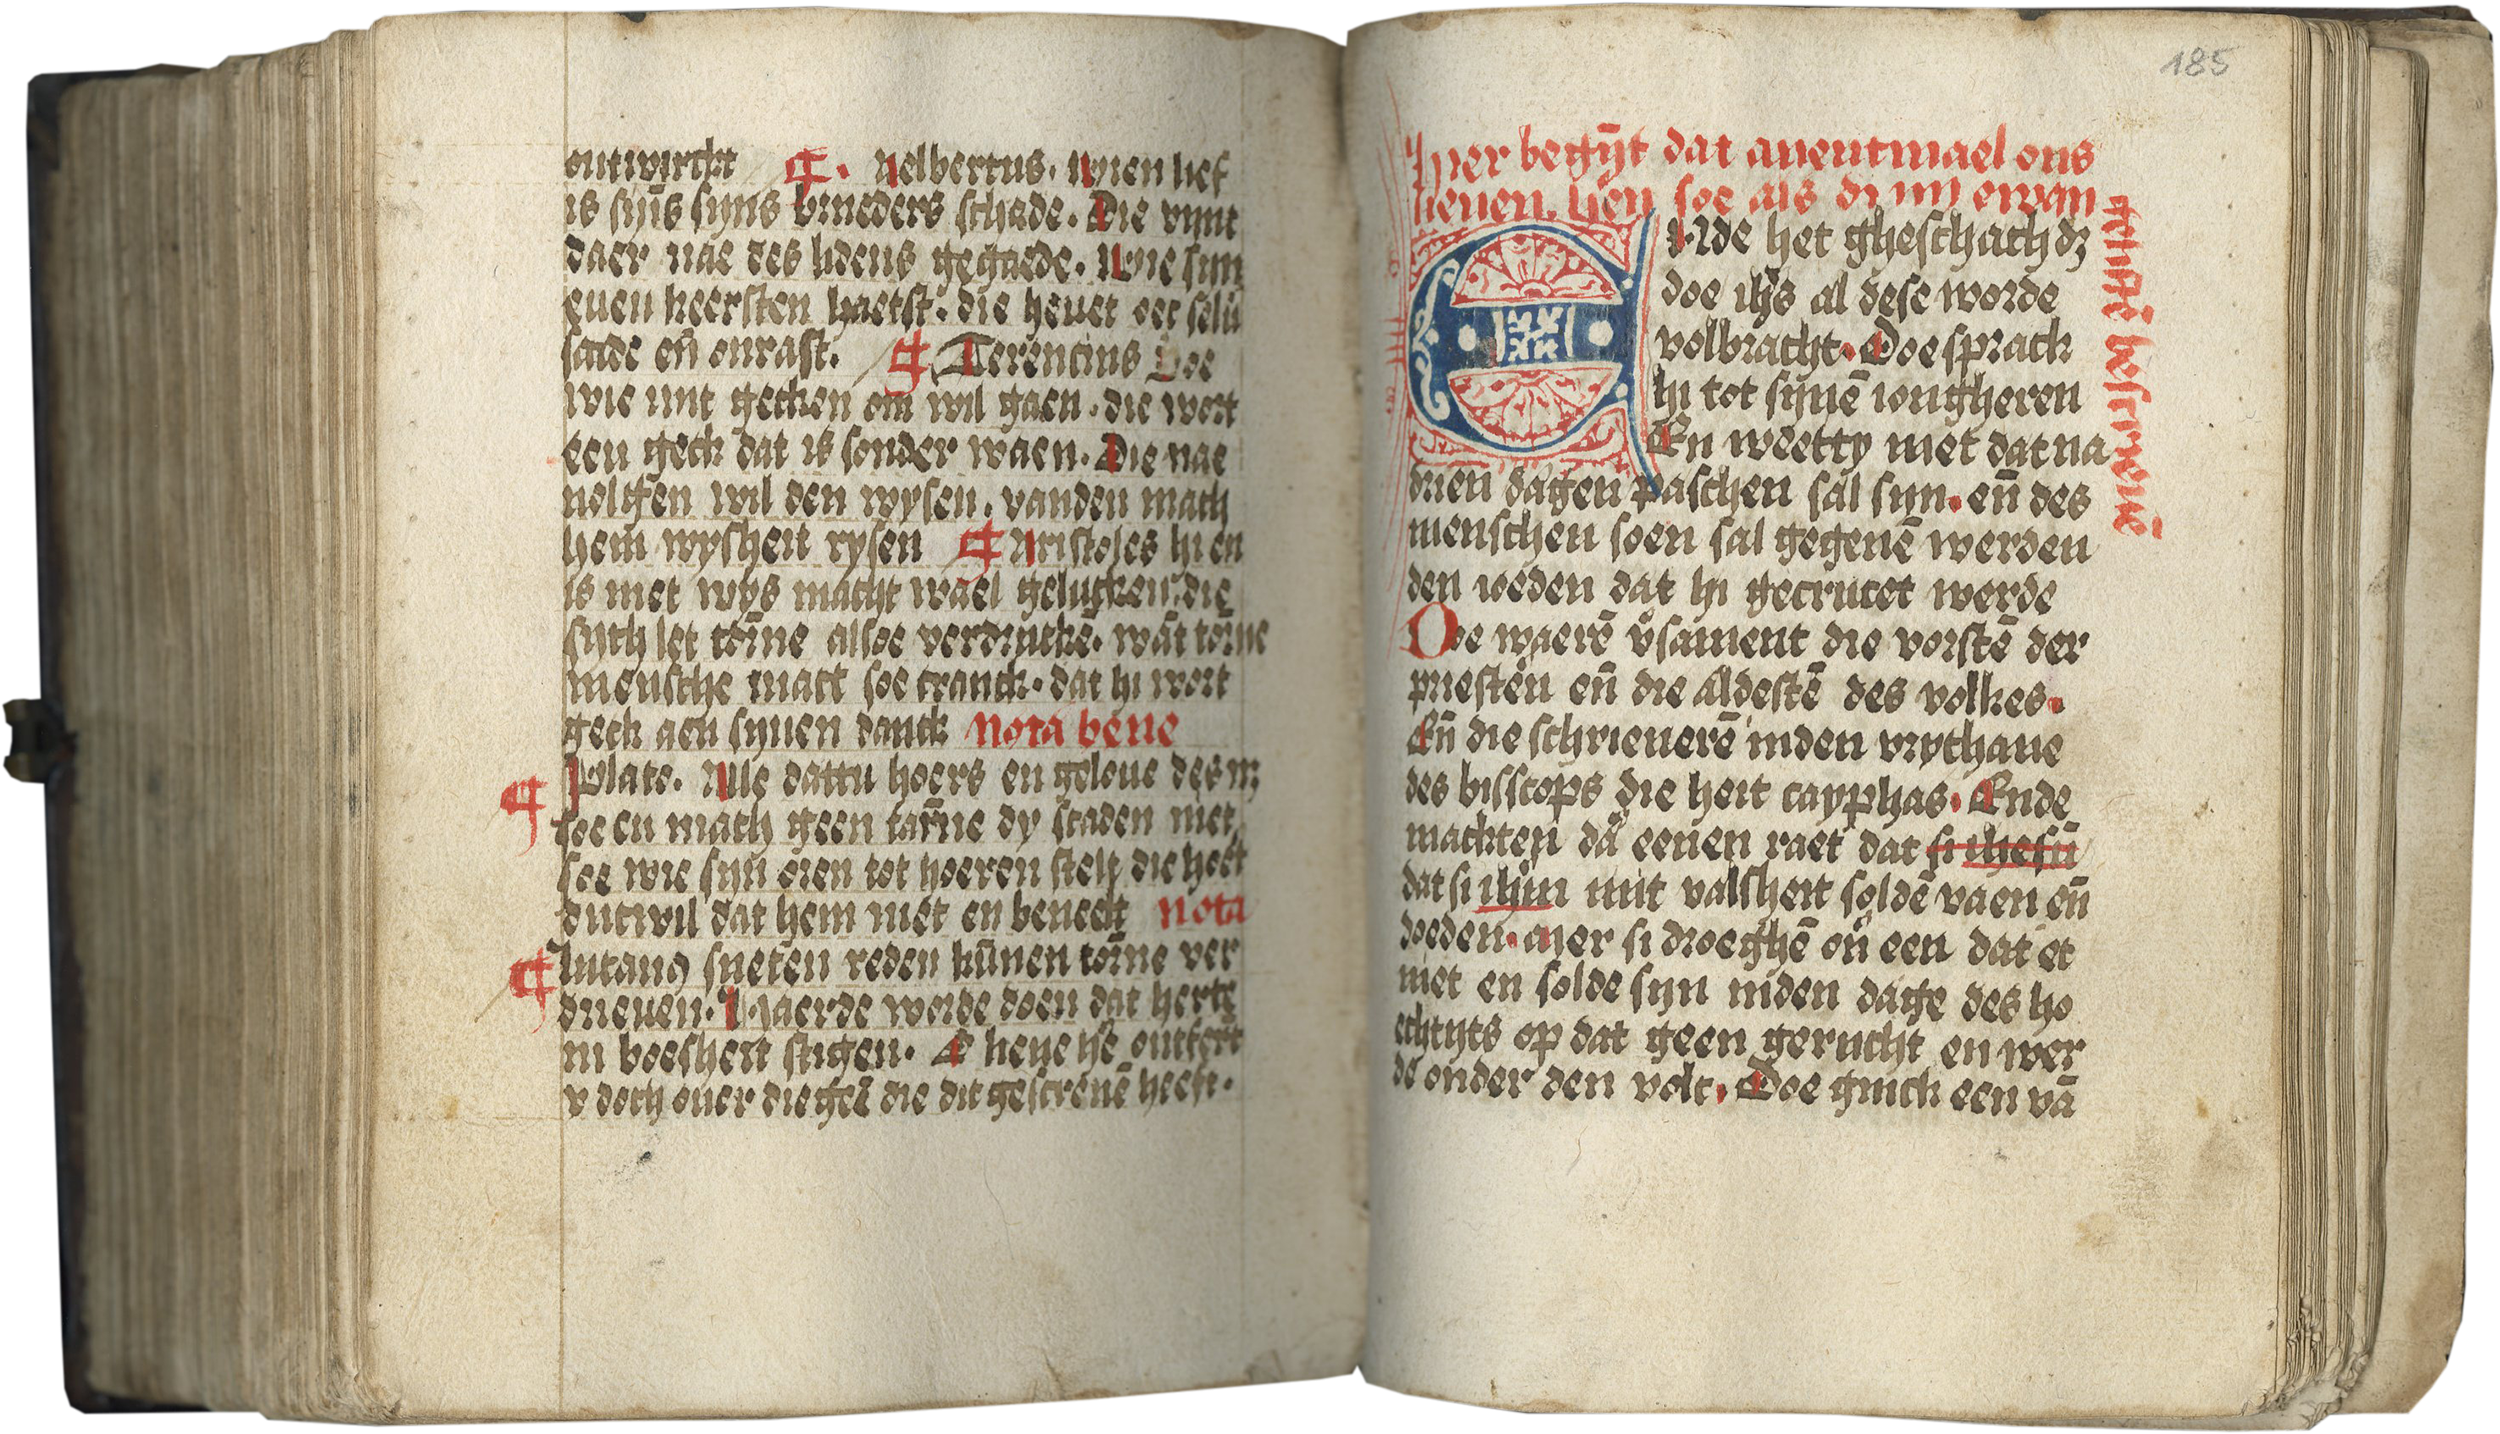 ontwirckt ¶. Aelbertus. Wien lief
is sijns sijns brueders schade. Die vijnt
daer nae des lidens gegaede. Wie sijn
euen keersten haetst. die heuet oec selū
scade eñ onrast. ¶ Terencius Soe
wie mit gecken om wil gaen. die wort
een geck dat is sonder waen. Die nae
uolgen wil den wysen. vanden mach
hem wysheit rysen ¶ Aristoles hi en
is niet wys macht wael gelucken. die
sych let torne alsoe verdrucke. wāt torne
mensche mact soe cranck. dat hi wort
geck aen synen danck Nota bene
¶ Plato. Alle dattu hoers en geloue des nz
soe en mach geen tarne dy scaden niet
soe wie sijn oren tot hoeren stelt die hoet
dutwil dat hem niet en beneet nota
¶ Lucanꝯ sueten reden kūnen torne ver
driuen. Haerde worde doen dat herte
in boesheit stigen. O heue he ontfert
v doch ouer die gēe die dit gescreuē heeft.
185
Hier begȳt dat auentmael ons
heuen. hen soe als di iiij ewan
gelistē bescriuē
Ende het gheschach dz
doe ihs al dese worde
volbracht. Doe sprack
hi tot synē iongheren
En weetty niet dat na
drien dagen paschen sal syn. eñ des
menschen soen sal gegeuē werden
den ioeden dat hi gecrucet werde
Doe waerē v̄sament die vorstē der
priesteren eñ die aldestē des volkes.
Eñ die schrieuerē inden vrythaue
des bisscops die heit cayphas. Ende
machten daer eenen raet dat si ihesū
dat si ihm mit valsheit soldē vaen eñ
doeden. Mer si droeghē ouer een dat et
niet en solde syn inden dage des ho
echtyts op dat geen gerucht en wer
de onder den volc. Doe ginck een vā